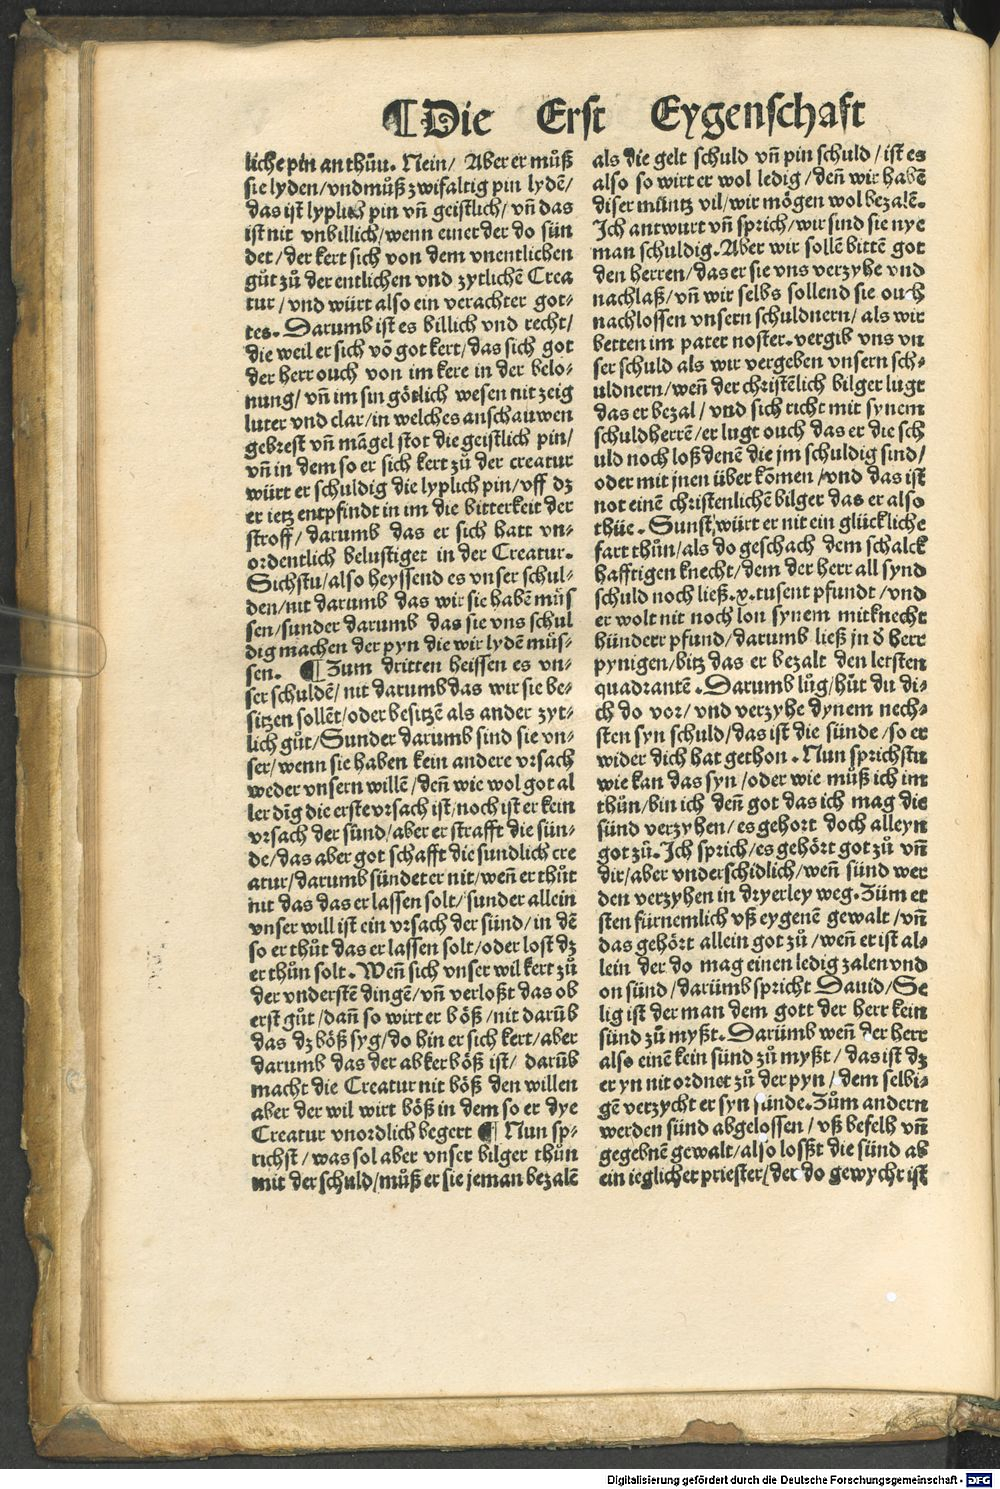 ¶Die Erst Eygenschaft
liche pin an thůn. Nein/ Aber er můß
sie lyden/vnd můß zwifaltig pin lydē/
das ist lyplich pin vn̄ geistlich/vn̄ das
ist nit vnbillich/wenn einer der do sün
det/der kert sich von dem vnentlichen
gůt zů der entlichen vnd zytlichē Crea
tur/vnd würt also ein verachter got-
tes. Darumb ist es billich vnd recht/
die weil er sich vō got kert/das sich got
der herr ouch von im kere in der belo-
nung/vn̄ im sin götlich wesen nit zeig
luter vnd clar/in welches anschauwen
gebrest vn̄ māgel stot die geistlich pin/
vn̄ in dem so er sich kert zů der creatur
würt er schuldig die lyplich pin/vff dz
er ietz entpfindt in im die bitterkeit der
stroff/darumb das er sich hatt vn-
ordentlich belustiget in der Creatur.
Sichstu/also heyssend es vnser schul-
den/nit darumb das wir sie habē müs
sen/sunder darumb das sie vns schul
dig machen der pyn die wir lydē müs-
sen. ¶Zum dritten heissen es vn-
ser schuldē/nit darumb das wir sie be-
sitzen sollēt/oder besitzē als ander zyt-
lich gůt/Sunder darumb sind sie vn-
ser/wenn sie haben kein andere vrsach
weder vnsern willē/den̄ wie wol got al
ler dīg die erste vrsach ist/noch ist er kein
vrsach der sünd/aber er strafft die sün-
de/das aber got schafft die sundlich cre
atur/darumb sündet er nit/wen̄ er thůt
nit das das er lassen solt/sunder allein
vnser will ist ein vrsach der sünd/in dē
so er thůt das er lassen solt/oder lost dz
er thůn solt. Wen̄ sich vnser wil kert zů
der vnderstē dingē/vn̄ verloßt das ob
erst gůt/dan̄ so wirt er böß/nit darūb
das dz böß syg/do hin er sich kert/aber
darumb das der abker böß ist/ darūb
macht die Creatur nit böß den willen
aber der wil wirt böß in dem so er dye
Creatur vnordlich begert ¶ Nun sp-
richst/was sol aber vnser bilger thůn
mit der schuld/můß er sie jeman bezalē
als die gelt schuld vn̄ pin schuld/ist es
also so wirt er wol ledig/den̄ wir habē
diser müntz vil/wir mögen wol bezalē.
Ich antwurt vn̄ sprich/wir sind sie nye
man schuldig. Aber wir sollē bittē got
den herren/das er sie vns verzyhe vnd
nachlaß/vn̄ wir selbs sollend sie ouch
nachlossen vnsern schuldnern/als wir
betten im pater noster. vergib vns vn
ser schuld als wir vergeben vnsern sch-
uldnern/wen̄ der christēlich bilger lugt
das er bezal/vnd sich richt mit synem
schuldherrē/er lugt ouch das er die sch
uld noch loß denē die jm schuldig sind/
oder mit jnen über kōmen/vnd das ist
not einē christenlichē bilger das er also
thüe. Sunst würt er nit ein glückliche
fart thůn/als do geschach dem schalck
hafftigen knecht/dem der herr all synd
schuld noch ließ.x.tusent pfundt/vnd
er wolt nit noch lon synem mitknecht
hündert pfund/darumb ließ jn d̕ herr
pynigen/bitz das er bezalt den letsten
quadrantē. Darumb lůg/hüt du di-
ch do vor/vnd verzyhe dynem nech-
sten syn schuld/das ist die sünde/so er
wider dich hat gethon. Nun sprichstu
wie kan das syn/oder wie můß ich im
thůn/bin ich den̄ got das ich mag die
sünd verzyhen/es gehort doch alleyn
got zů. Ich sprich/es gehört got zů vn̄
dir/aber vnderschidlich/wen̄ sünd wer
den verzyhen in dryerley weg. Züm er
sten fürnemlich vß eygenē gewalt/vn̄
das gehört allein got zů/wen̄ er ist al-
lein der do mag einen ledig zalen vnd
on sünd/darümb spricht Dauid/Se
lig ist der man dem gott der herr kein
sünd zů myßt. Darümb wen̄ der herr
also einē kein sünd zů myßt/das ist dz
er yn nit ordnet zů der pyn/dem selbi-
gē verzycht er syn sünde. Zům andern
werden sünd abgelossen/vß befelh vn̄
gegebnē gewalt/also loßt die sünd ab
ein ieglicher priester/der do gewycht ist
Digitalisierung gefördert durch die Deutsche Forschungsgemeinschaft - DFG